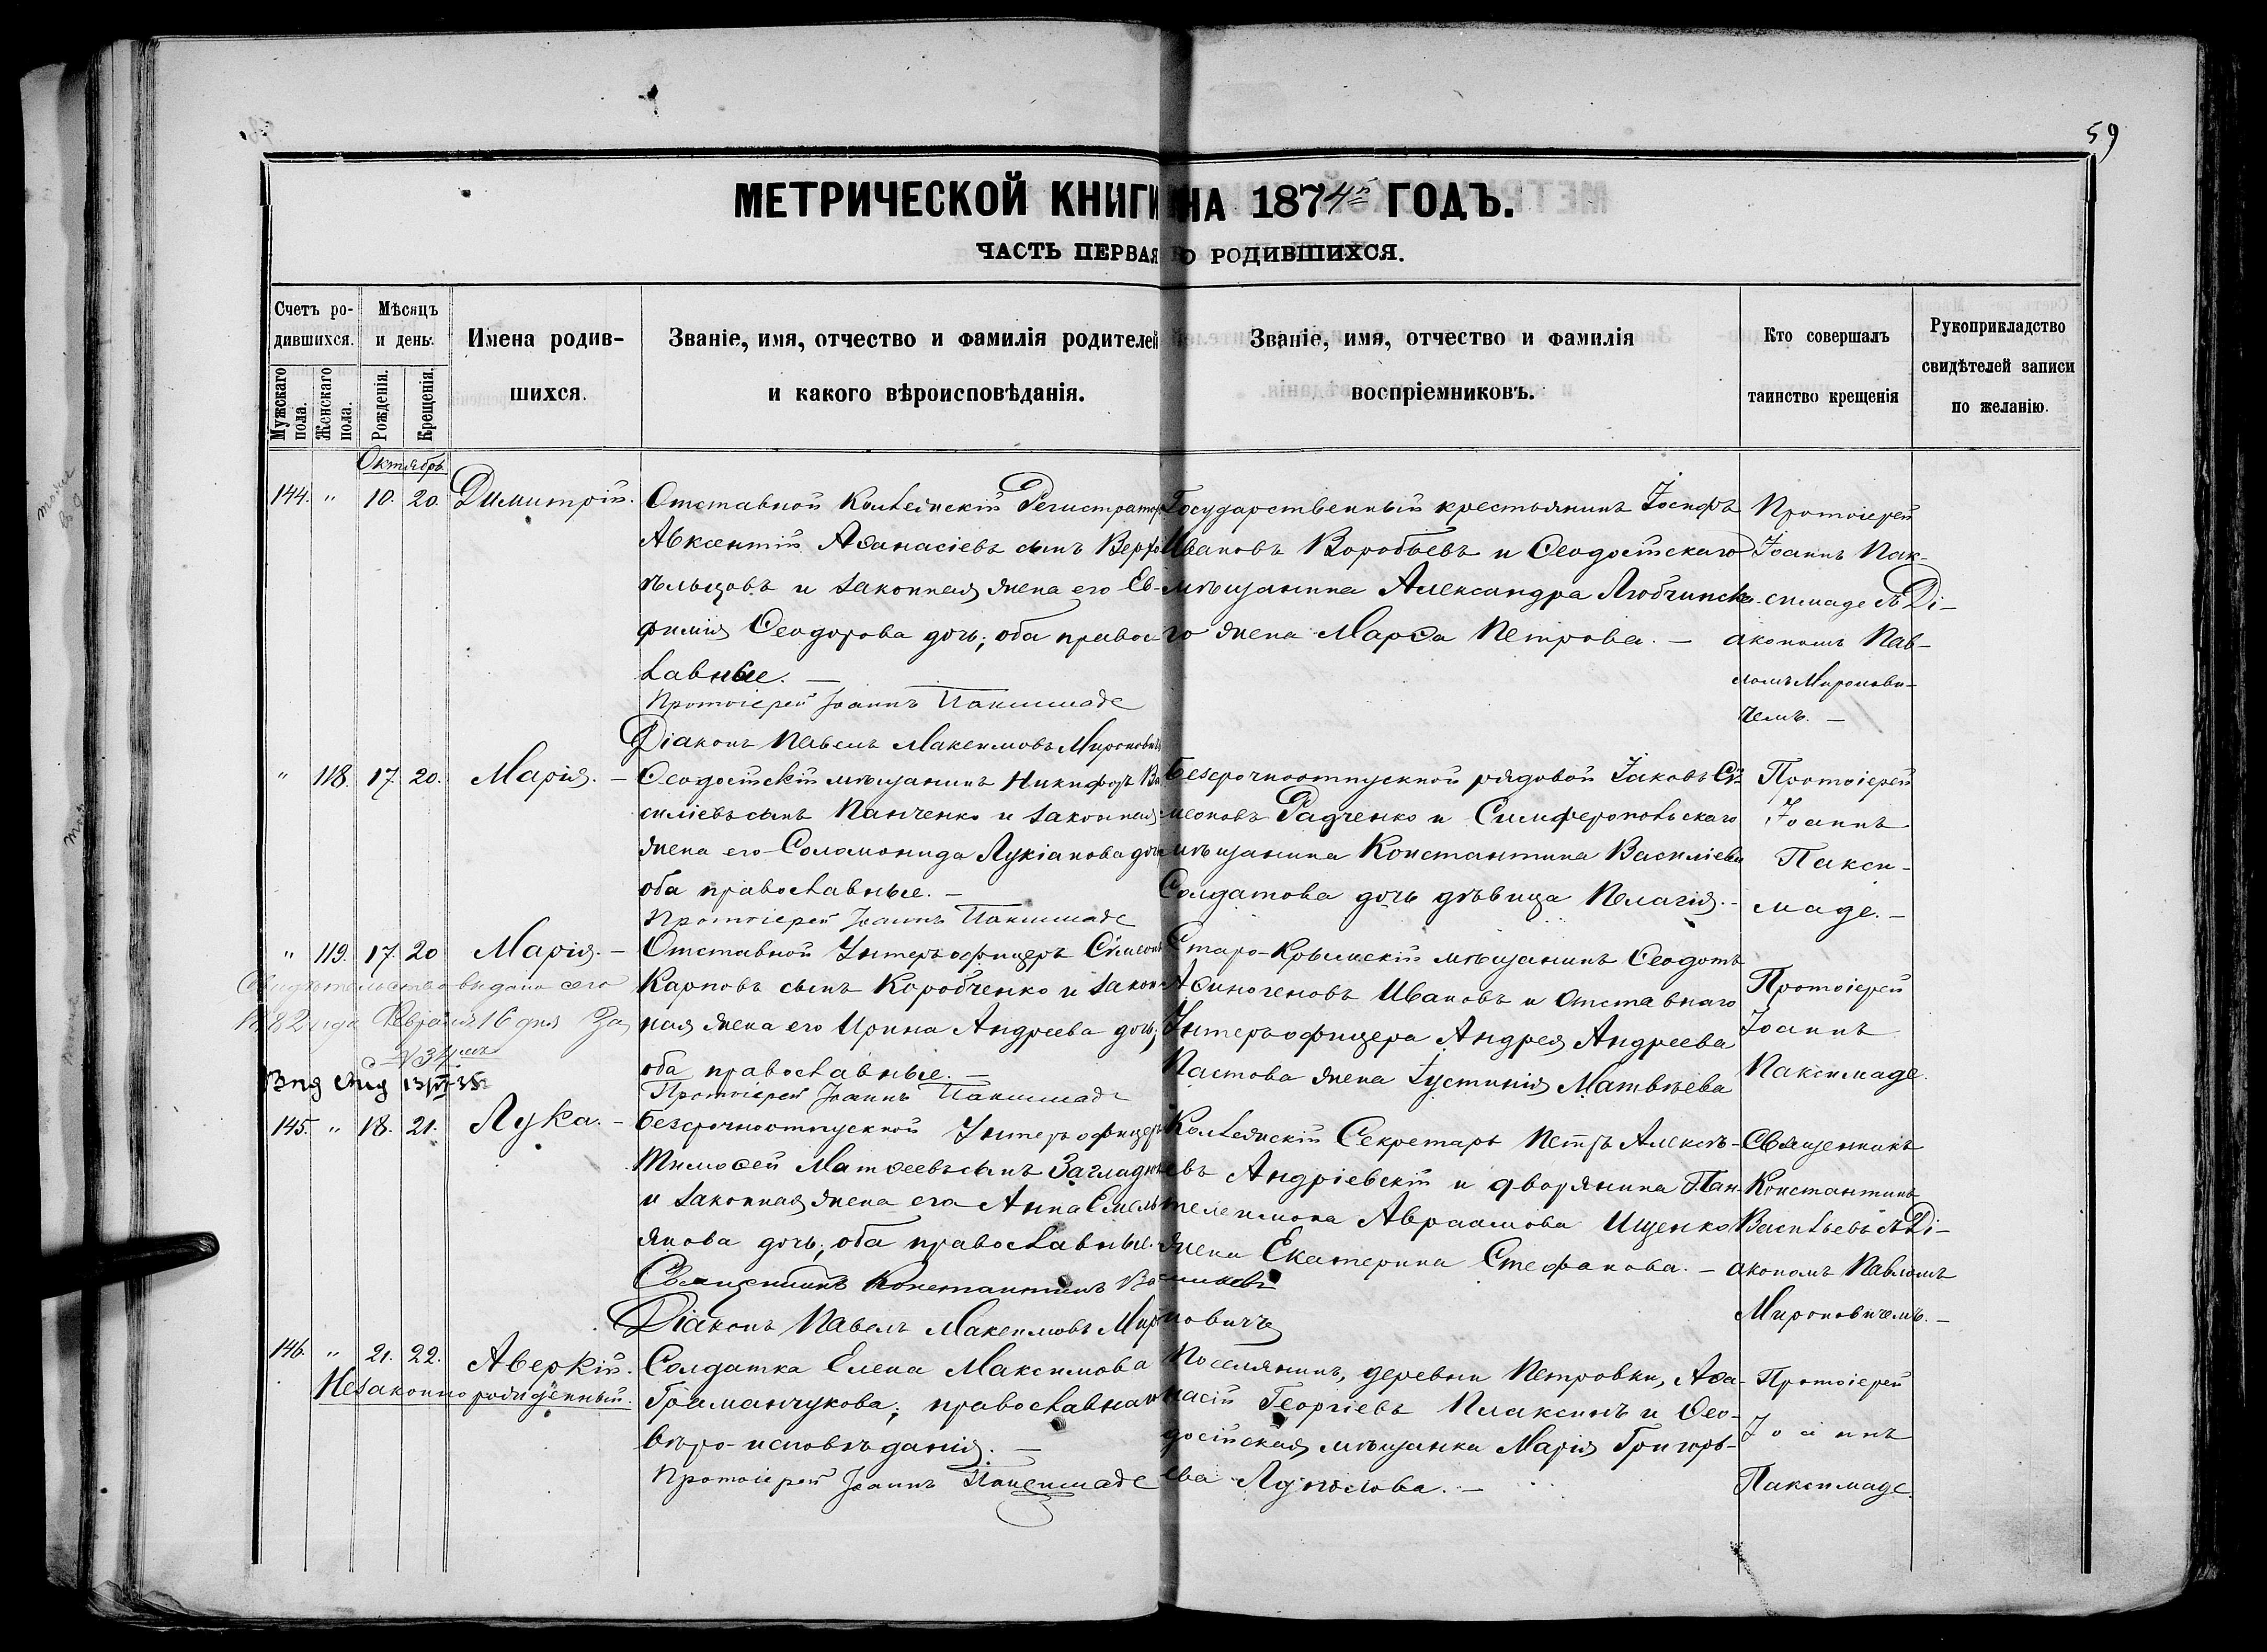 59
МЕТРИЧЕСКОЙ КНИГИ НА 1874й ГОДЪ.
ЧАСТЬ ПЕРВАЯ О РОДИВШИХСЯ.
Счетъ ро-
дившихся.
Мужскаго пола.
Женскаго пола.
Мѣсяцъ
и день.
Рожденія.
Крещенія.
Имена родив-
шихся.
Званіе, имя, отчество и фамилія родителей
и какого вѣроисповѣданія.
Званіе, имя, отчество и фамилія
воспріемниковъ.
Кто совершалъ
таинство крещенія
Рукоприкладство
свидѣтелей записи
по желанію.
Октябрь
144. " 10. 20. Димитрій.
Отставной Коллежскій Регистраторъ
Авксентій Аѳанасіевъ сынъ Верхо
тѣльцовъ и законная жена его Ев-
фимія Ѳеодорова дочь; оба правос
лавные. —
Протоіерей Іоаннъ Паксимаде
Діаконъ Павелъ Максимовъ Мироновичъ
Государственный крестьянинъ Іосифъ
Ивановъ Воробьевъ и Ѳеодосійскаго
мѣщанина Александра Любчинска-
го жена Марѳа Петрова. —
Протоіерей
Іоаннъ Пак-
симаде съ Ді-
акономъ Пав-
ломъ Миронови-
чемъ. —
" 118. 17. 20. Марія. —
Ѳеодосійскій мѣщанинъ Никифоръ Ва
силіевъ сынъ Панченко и законная
жена его Соломонида Лукіанова дочь
оба православные. —
Протоіерей Іоаннъ Паксимаде
Безсрочноотпускной рядовой Іаковъ Сѵ-
меоновъ Радченко и Симферопольскаго
мѣщанина Константина Василіева
Солдатова дочь дѣвица Пелагія. —
Протоіерей
Іоаннъ
Пакси-
маде. —
" 119. 17. 20 Марія. —
Свидѣтельство выдано сего
1882 года Февраля 16 дня За
с № 34
Отставной Унтеръ офицеръ Сѵмеонъ
Карповъ сынъ Коробченко и закон-
ная жена его Ирина Андреева дочь;
оба православные. —
Протоіерей Іоаннъ Паксимаде
Старо-Крымскій мѣщанинъ Ѳеодотъ
Аѳиногеновъ Ивановъ и отставнаго
Унтеръ офицера Андрея Андреева
Пастова жена Іустинія Матвѣева
Протоіерей
Іоаннъ
Паксимаде.
145. " 18. 21. Лука. —
Безсрочноотпускной Унтеръ офицеръ
Тимоѳей Матѳеевъ сынъ
и законная жена его Анна Емель
янова дочь; оба православные.
Священникъ Константинъ Васильевъ
Діаконъ Павелъ Максимовъ Мироновичъ
Коллежскій Секретарь Петръ Алексѣ-
евъ Андріевскій и дворянина Пан-
телеимона Авраамова Ищенко
жена Екатерина Стефанова. —
Священникъ
Константинъ
Васильевъ съ Ді-
акономъ Павломъ
Мироновичемъ. —
146. " 21. 22. Аверкій.
Незаконно рожденный.
Солдатка Елена Максимова
Грималчукова; православнаго
вѣро-исповѣданія. —
Протоіерей Іоаннъ Паксимаде
Поселянинъ, деревни Петровки, Аѳа-
насій Георгіевъ Плаксинъ и Ѳео-
досійская мѣщанка Марія Григорь-
ева
Протоіерей
Іоаннъ
Паксимаде.